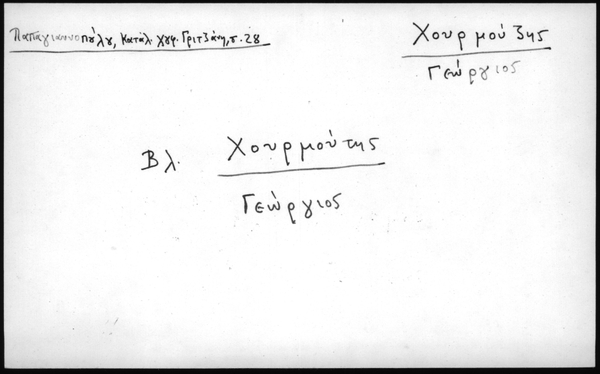 Παπαγιαννοπούλου, Κατάλ. χφ. Γριτζάνη, σ. 28
Χουρμούζης
Γεώργιος
Βλ. Χουρμούτης
Γεώργιος